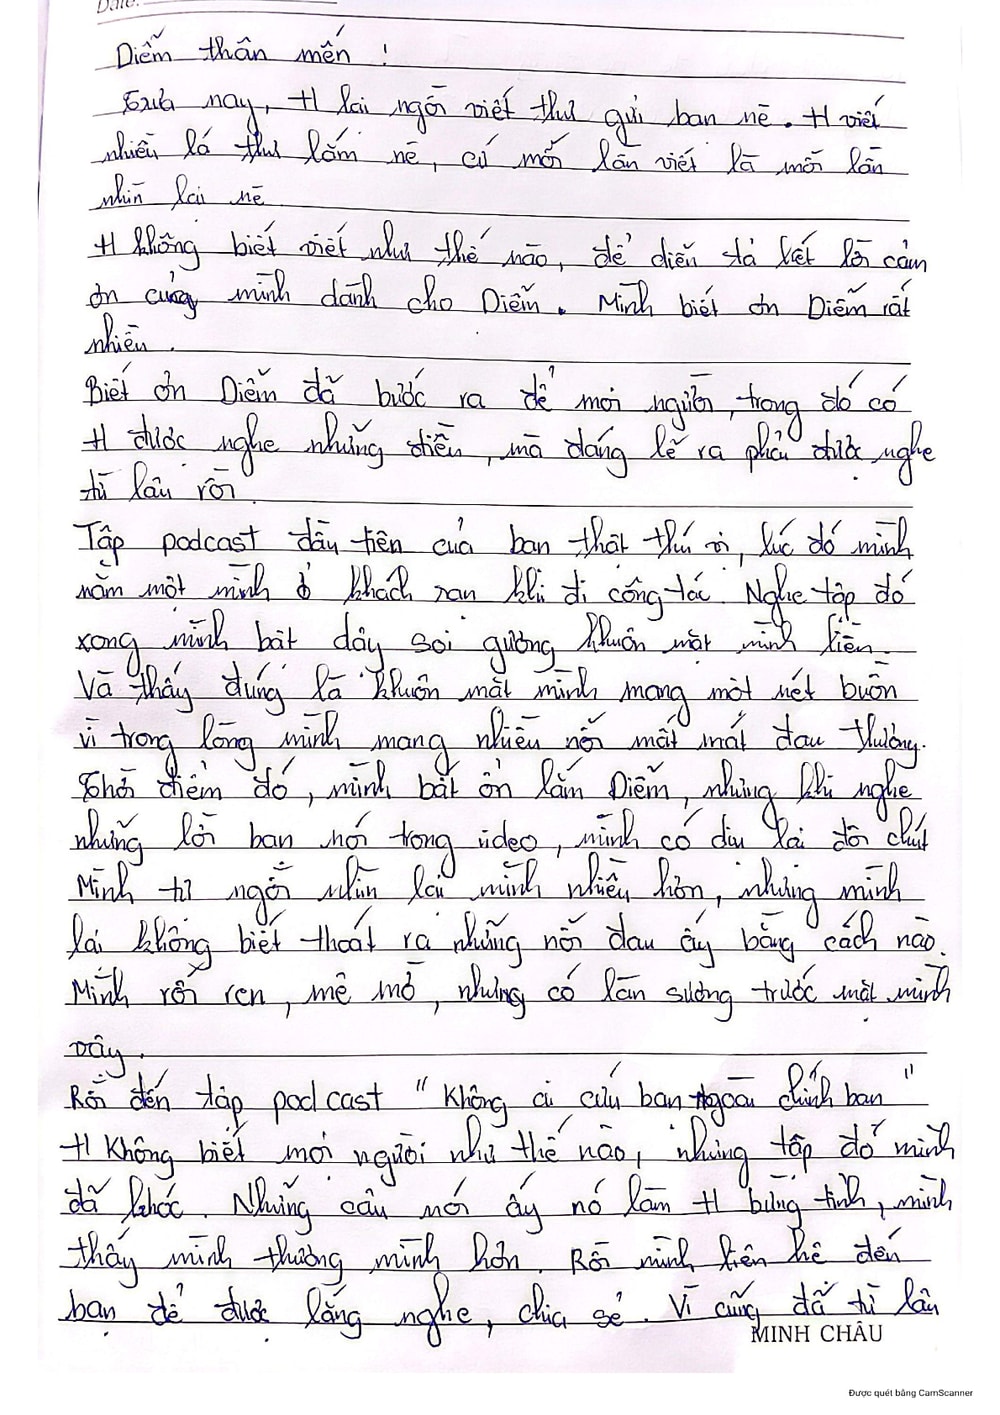 Date:
Diễm thân mến !
Trưa nay, H lại ngồi viết thư gửi bạn nè. H viết
nhiều lá thư lắm nè, cứ mỗi lần viết là mỗi lần
nhìn lại nè
H không biết viết như thế nào, để diễn tả hết lời cảm
ơn của mình dành cho Diễm. Mình biết ơn Diễm rất
nhiều.
Biết ơn Diễm đã bước ra để mọi người, trong đó có
H được nghe những điều, mà đáng lẽ ra phải được nghe
từ lâu rồi.
Tập podcast đầu tiên của bạn thật thú vị, lúc đó mình
nằm một mình ở khách sạn khi đi công tác. Nghe tập đó
xong mình bật dậy soi gương khuôn mặt mình liền.
Và thấy đúng là khuôn mặt mình mang một nét buồn
vì trong lòng mình mang nhiều nỗi mất mát đau thương.
Thời điểm đó, mình bất ổn lắm Diễm, nhưng khi nghe
những lời bạn nói trong video, mình có dịu lại đôi chút
Mình tự ngồi nhìn lại mình nhiều hơn, nhưng mình
lại không biết thoát ra những nỗi đau ấy bằng cách nào.
Mình rối ren, mê mờ, nhưng có làn sương trước mặt mình
vậy.
Rồi đến tập podcast "Không ai cứu bạn ngoài chính bạn"
H không biết mọi người như thế nào, nhưng tập đó mình
đã khóc. Những câu nói ấy nó làm H bừng tỉnh, mình
thấy mình thương mình hơn. Rồi mình liên hệ đến
bạn để được lắng nghe, chia sẻ. Vì cũng đã từ lâu
MINH CHÂU
Được quét bằng CamScanner